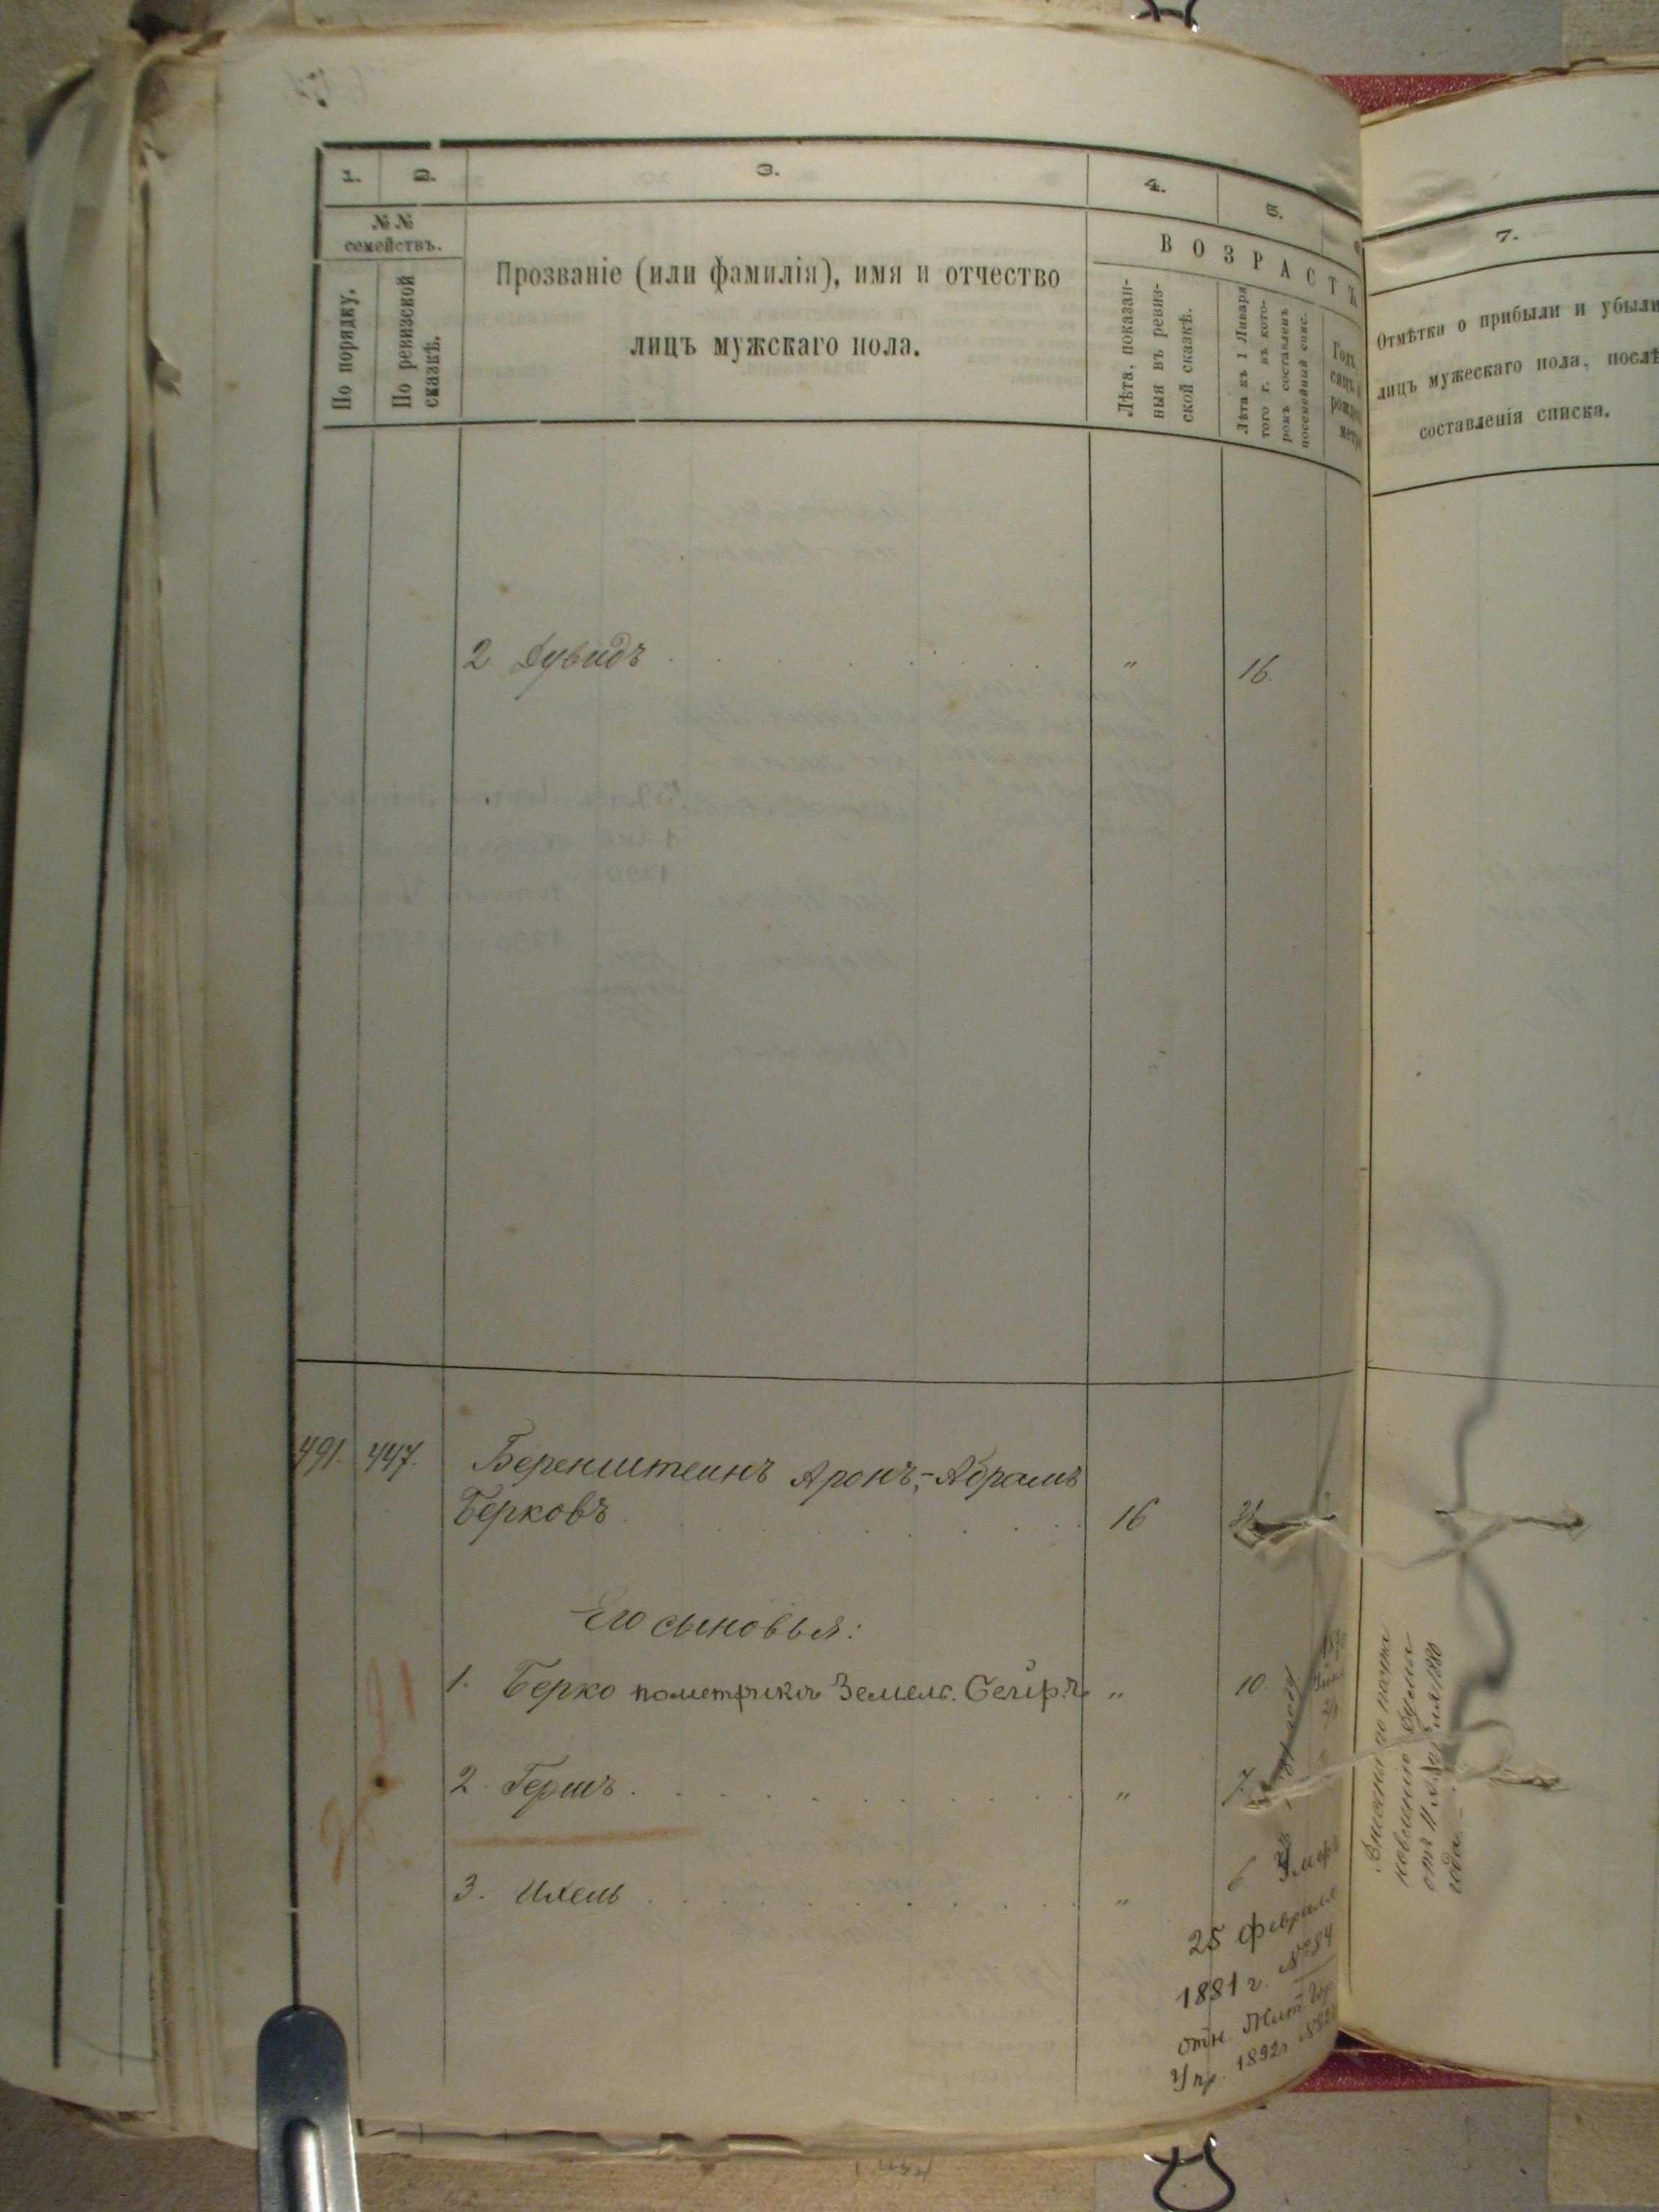 1.
2.
3.
4.
5.
7.
№ №
семействъ.
По порядку.
По ревизской
сказкѣ.
Прозваніе (или фамилія), имя и отчество
лицъ мужскаго пола.
ВОЗРАСТЪ
Лѣта, показан-
ныя въ ревиз-
ской сказкѣ.
Лѣта къ 1 Января
того г. въ кото-
ромъ составленъ
посемейный спис.
Отмѣтка о прибыли и убыли
лицъ мужескаго пола, послѣ
составленія списка.
2 Дувидъ . . . . . . . . „ 16.
491. 447. Беренштеинъ Аронъ,-Абрамъ
Берковъ . . . . . . . 16
Его сыновья:
1. Берко пометрикѣ Земель. Сеирⷬ „ 10.
2. Гершъ . . . . . . . . „ 7
3. Ихель . . . . . . . . „ 6 Умеръ
25 февраля
1881 г. № 84
отн. Жит. Гор
Упр. 1892 г.
Внесены по поста
новленію Думы
отъ 11 1880
года